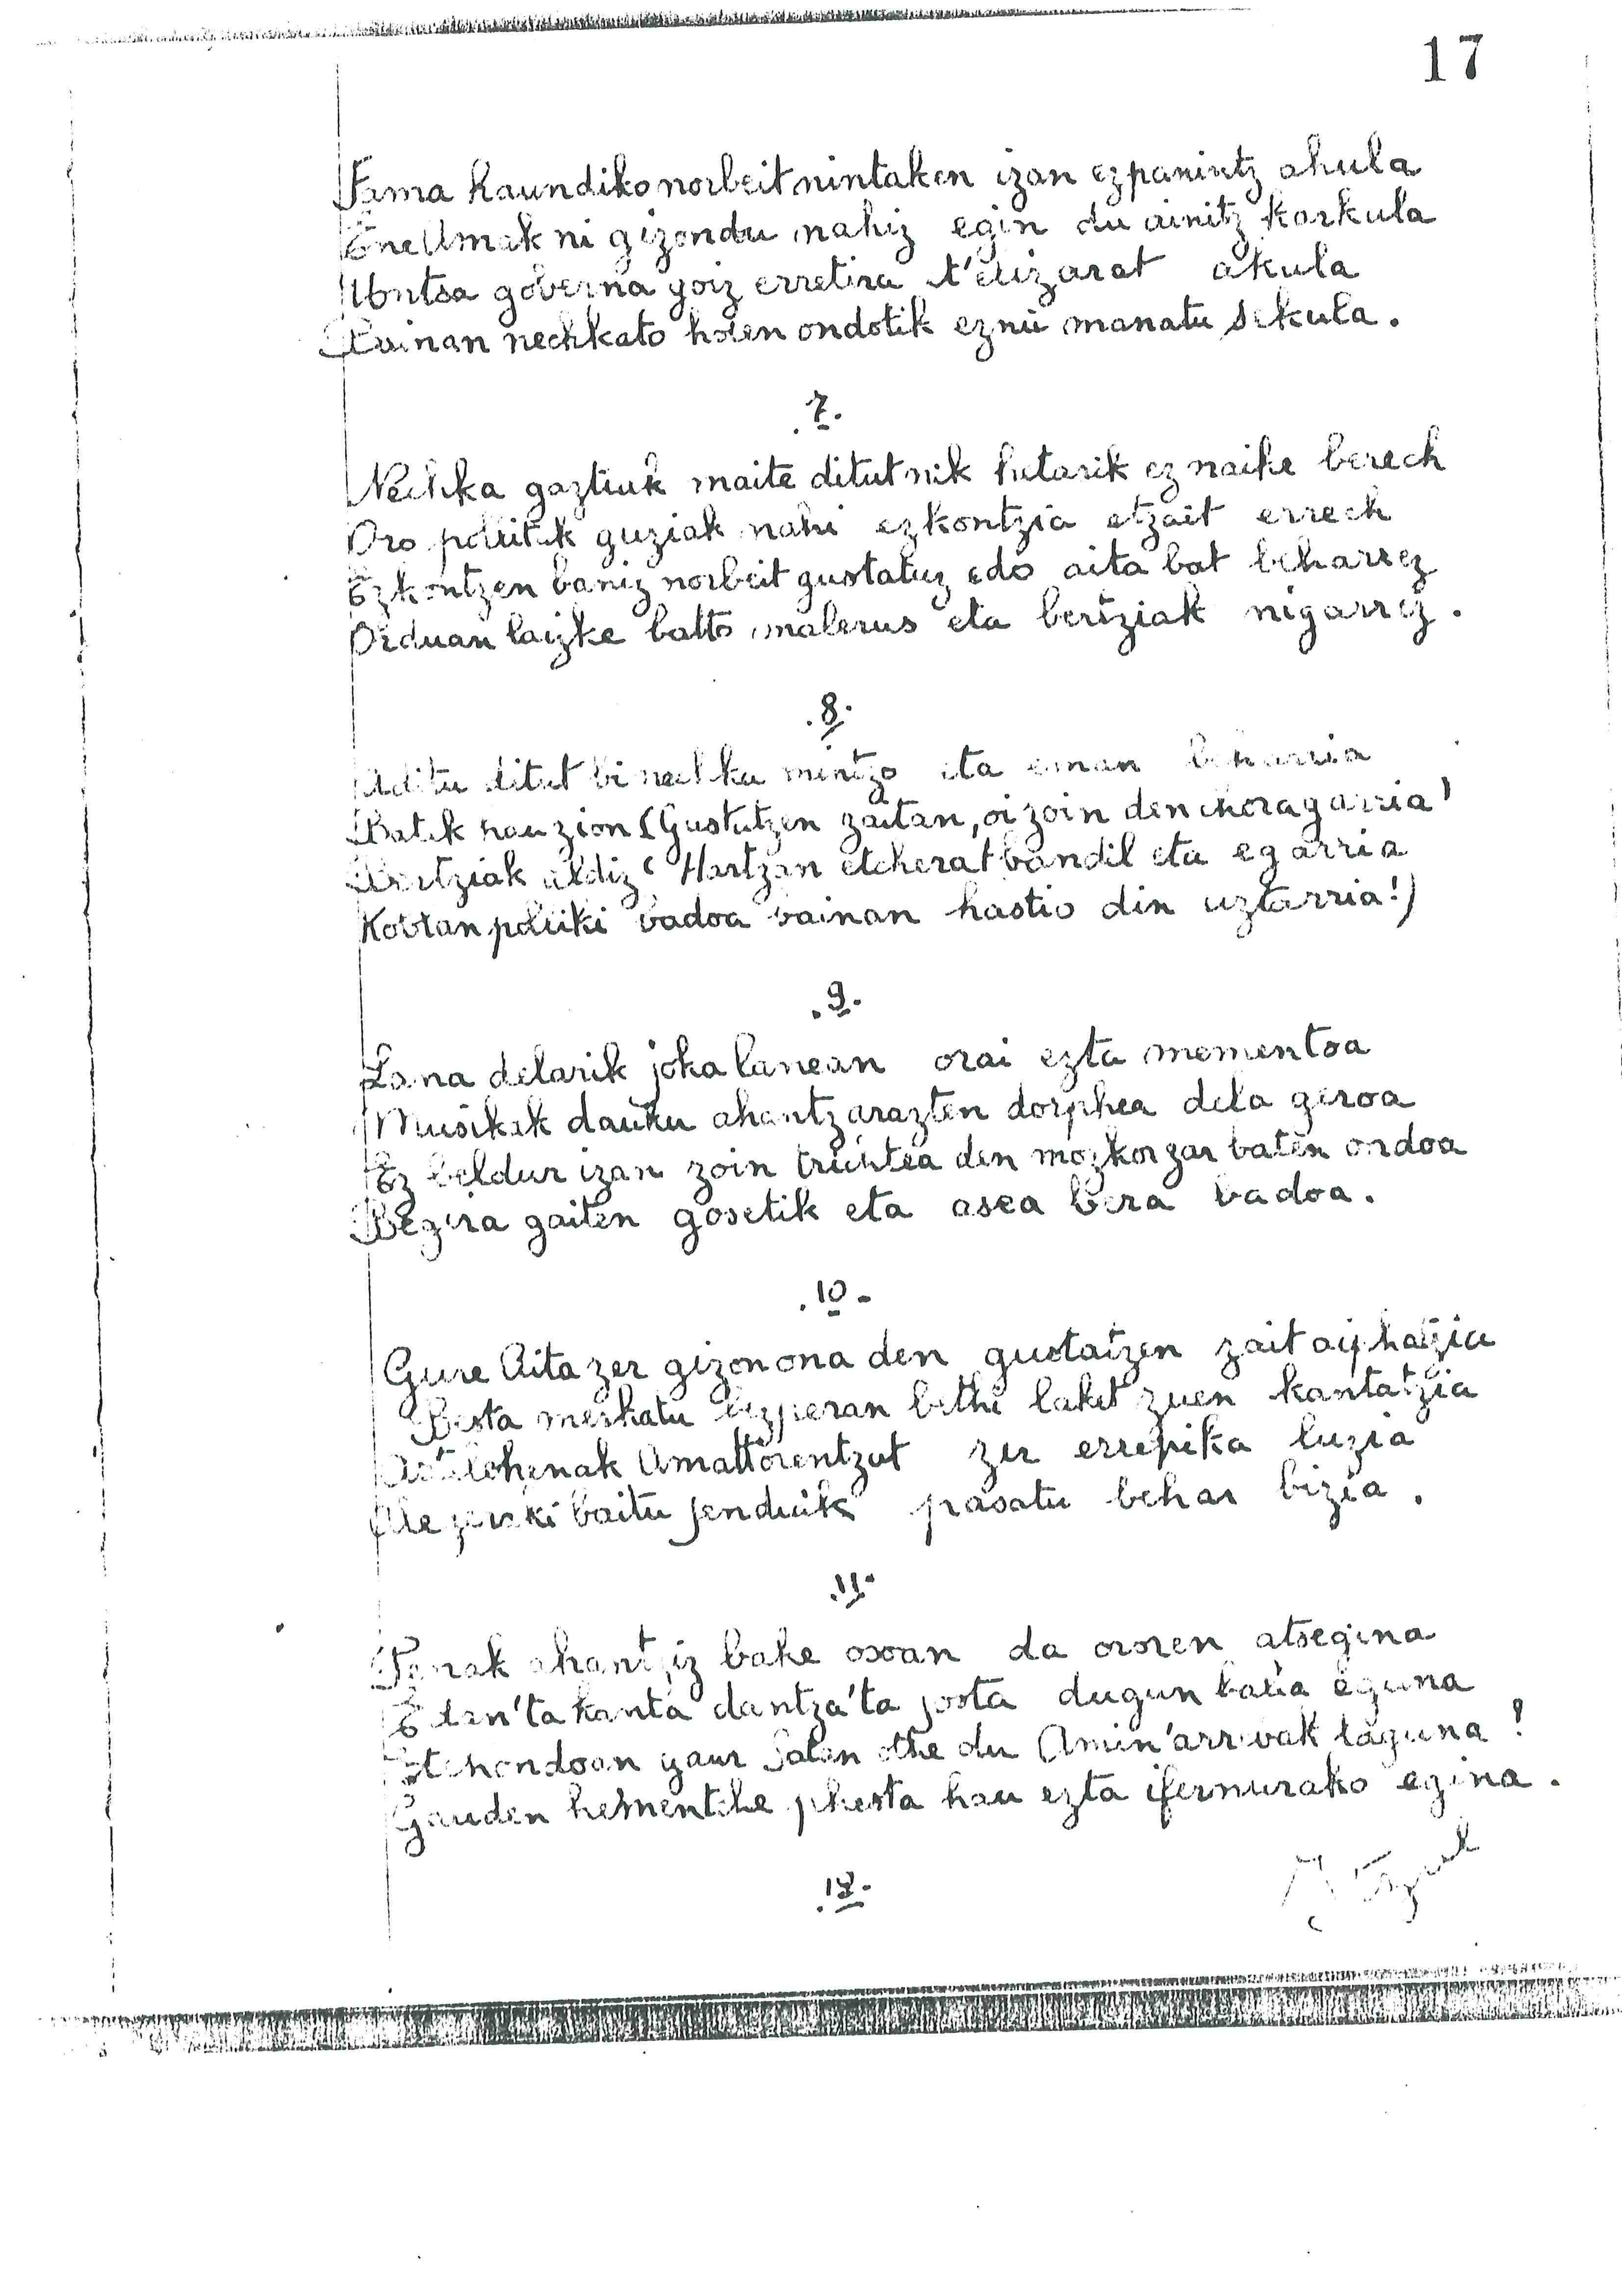 17
Fama haundiko norbeit nintaken izan ezpanintz ahula
Ene Amak ni gizondu nahiz egin du ainitz karkula
Untsa goberna goiz erretira t'elizarat akula
Bainan nechkato hoien ondotik eznü manatu sekula.
.7.
Nechka gaztiak maite ditut nik hetarik ez naike berech
Oro politak guziak nahi ezkontzia etzait errech
Ezkontzen baniz norbeit gustatuz edo aita bat beharrez
Orduan laizke batto malerus eta bertziak nigarrez.
.8.
Aditu ditut bi nechka mintzo eta eman beharria
Batek hau zion (Gustatzen zaitan, oi zoin den choragarria'
Bertziak aldiz ' Hartzan etcherat bandil eta egarria
Kotxan poliki badoa bainan hastio din uztarria!)
.9.
Lana delarik joka lanean orai ezta mementoa
Musikak dauku ahantzarazten dorphea dela geroa
Ez beldur izan zoin trichtea den mozkor zar baten ondoa
Begira gaiten gosetik eta asea bera badoa.
.10.
Gure Aita zer gizon ona den gustatzen zait aiphatzia
Besta meskatu bezperan bethi laket zuen kantatzia
Amattorentzat zer errepika luzia
Alegeraki baitu jendeak pasatu behar bizia.
.11.
Penak ahantziz bake osoan da ororen atsegina
Edan'ta kanta dantza'ta josta dugun batia eguna
Etchondoan gaur Satan othe du Amin'arribak laguna!
Gauden hementche phesta hau ezta ifernurako egina.
.12.